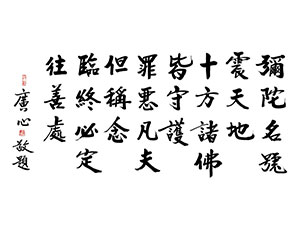 彌陀名號
震天地
十方諸佛
皆守護
罪惡凡夫
但稱念
臨終必定
往善處
廣心敬題